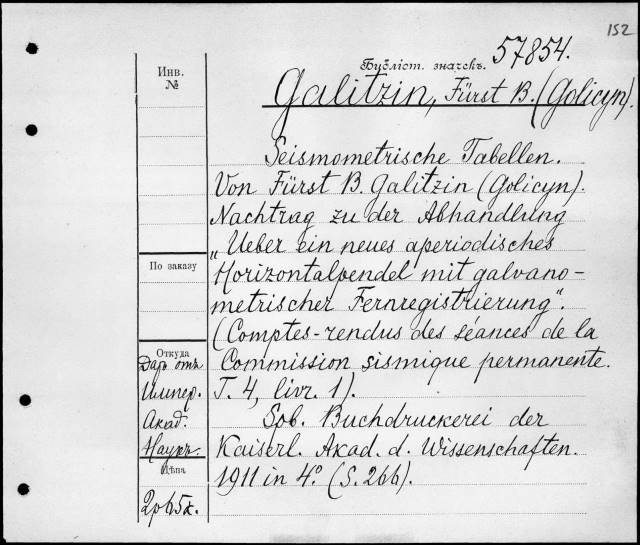 152
57854.
Бубліст. значекъ.
Инв.
№
Galitzin, Fürst B. (Golicyn)
Seismometrische Tabellen.
Von Fürst B. Galitzin (Golicyn).
Nachtrag zu der Abhandlung
„Ueber ein neues aperiodisches
По заказу
Horizontalpendel mit galvano-
metrischer Fernregistrierung“.
(Comptes-rendus des séances de la
Откуда
Даръ отъ
Commission sismique permanente.
Импер.
T. 4, livr. 1).
Акад.
Spb. Buchdruckerei der
Наукъ.
Kaiserl. Akad. d. Wissenschaften.
Цѣна
1911 in 4° (S. 266).
2р65к.